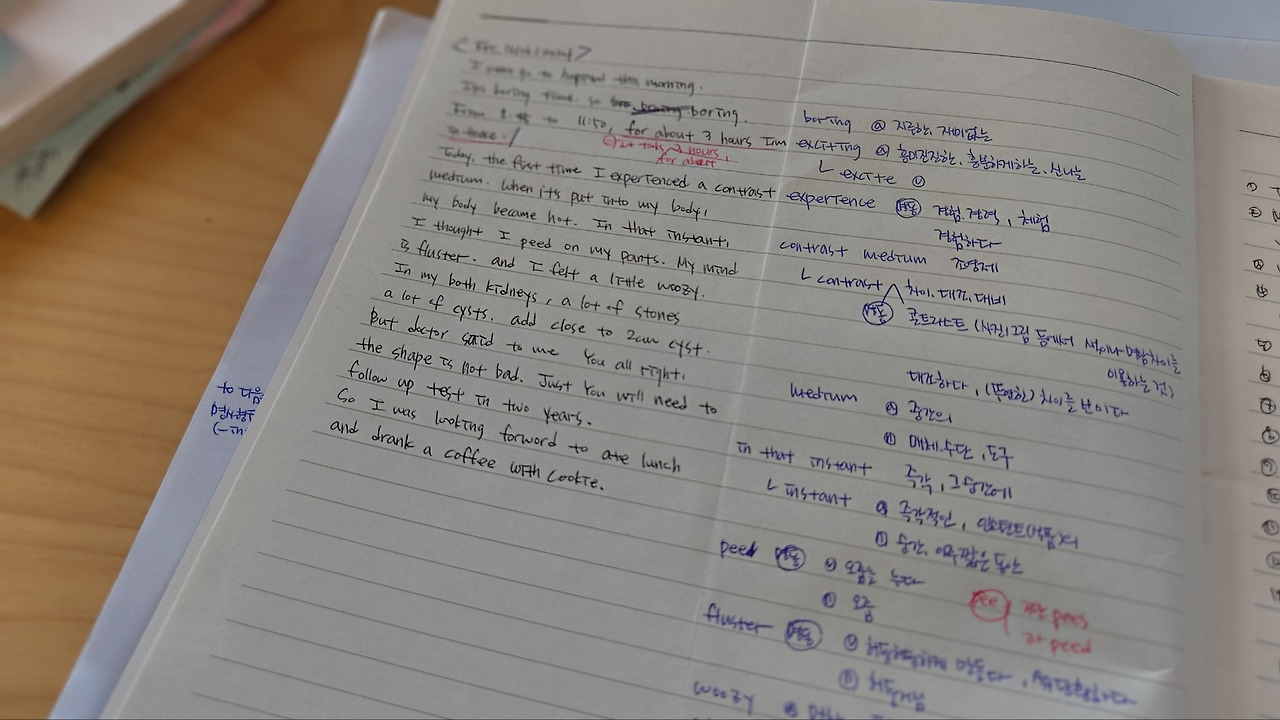 I go to hospital this morning.
boring time. so boring.
From 8: to 11:50, for about 3 hours I'm
in there. /
it takes 3 hours,
for about
Today, the first time I experienced a contrast
medium. When it's put into my body,
my body became hot. In that instant,
I thought I peed on my pants. My mind
is fluster. and I felt a little woozy.
In my both kidneys, a lot of stones
a lot of cysts. add close to 2cm cyst.
But doctor said to me You all right,
the shape is not bad. Just You will need to
follow up test in two years.
So I was looking forward to ate lunch
and drank a coffee with cookie.
boring ⓐ 지루한, 재미없는
exciting ⓐ 흥미진진한, 흥분하게하는, 신나는
excite ⓥ
experience 명,동 경험, 경력, 체험
경험하다
contrast medium 조영제
contrast 차이, 대조, 대비
명,동 콘트라스트 (사진/그림 등에서 색이나 명암차이를
이용하는 것)
대조하다, (뚜렷한) 차이를 보이다
medium ⓐ 중간의
ⓝ 매체, 수단, 도구
in that instant 즉각, 그 순간에
instant ⓐ 즉각적인, 인스턴트(식품)의
ⓝ 순간, 아주 짧은 동안
peed 명,동 ⓥ 오줌을 누다
ⓝ 오줌
pee 3단 pees
과 peed
fluster 명,동 ⓥ 허둥허둥하게 만들다,
ⓝ 허둥거림
woozy ⓐ
to 다음